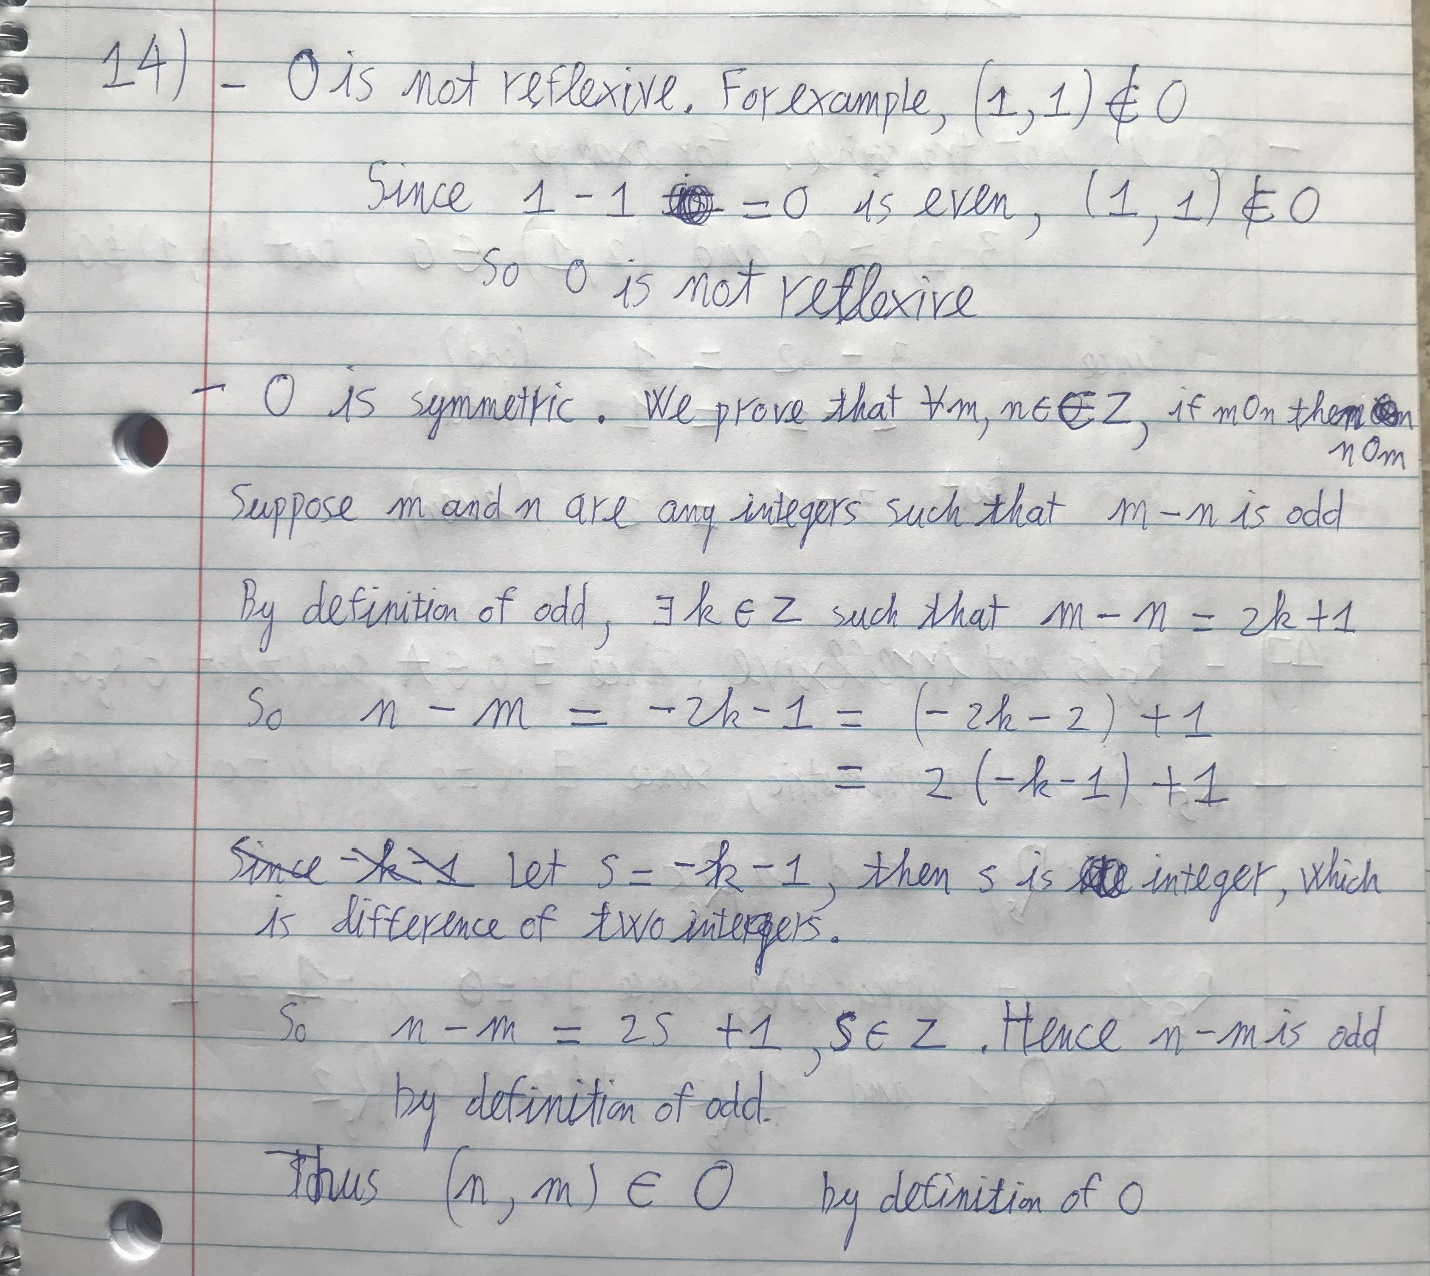 14) - O is not reflexive. For example, (1,1) ∉ O
Since 1 - 1 = 0 is even, (1,1) ∉ O
So O is not reflexive
- O is symmetric. We prove that ∀m, n ∈ Z, if m O n then
n O m
Suppose m and n are any integers such that m - n is odd
By definition of odd, ∃ k ∈ Z such that m - n = 2k + 1
So n - m = -2k - 1 = (-2k - 2) + 1
= 2 (-k - 1) + 1
Since -k-1 Let s = -k - 1, then s is integer, which
is difference of two intergers.
So n - m = 2s + 1, s ∈ Z. Hence n - m is odd
by definition of odd.
Thus (n, m) ∈ O by definition of O